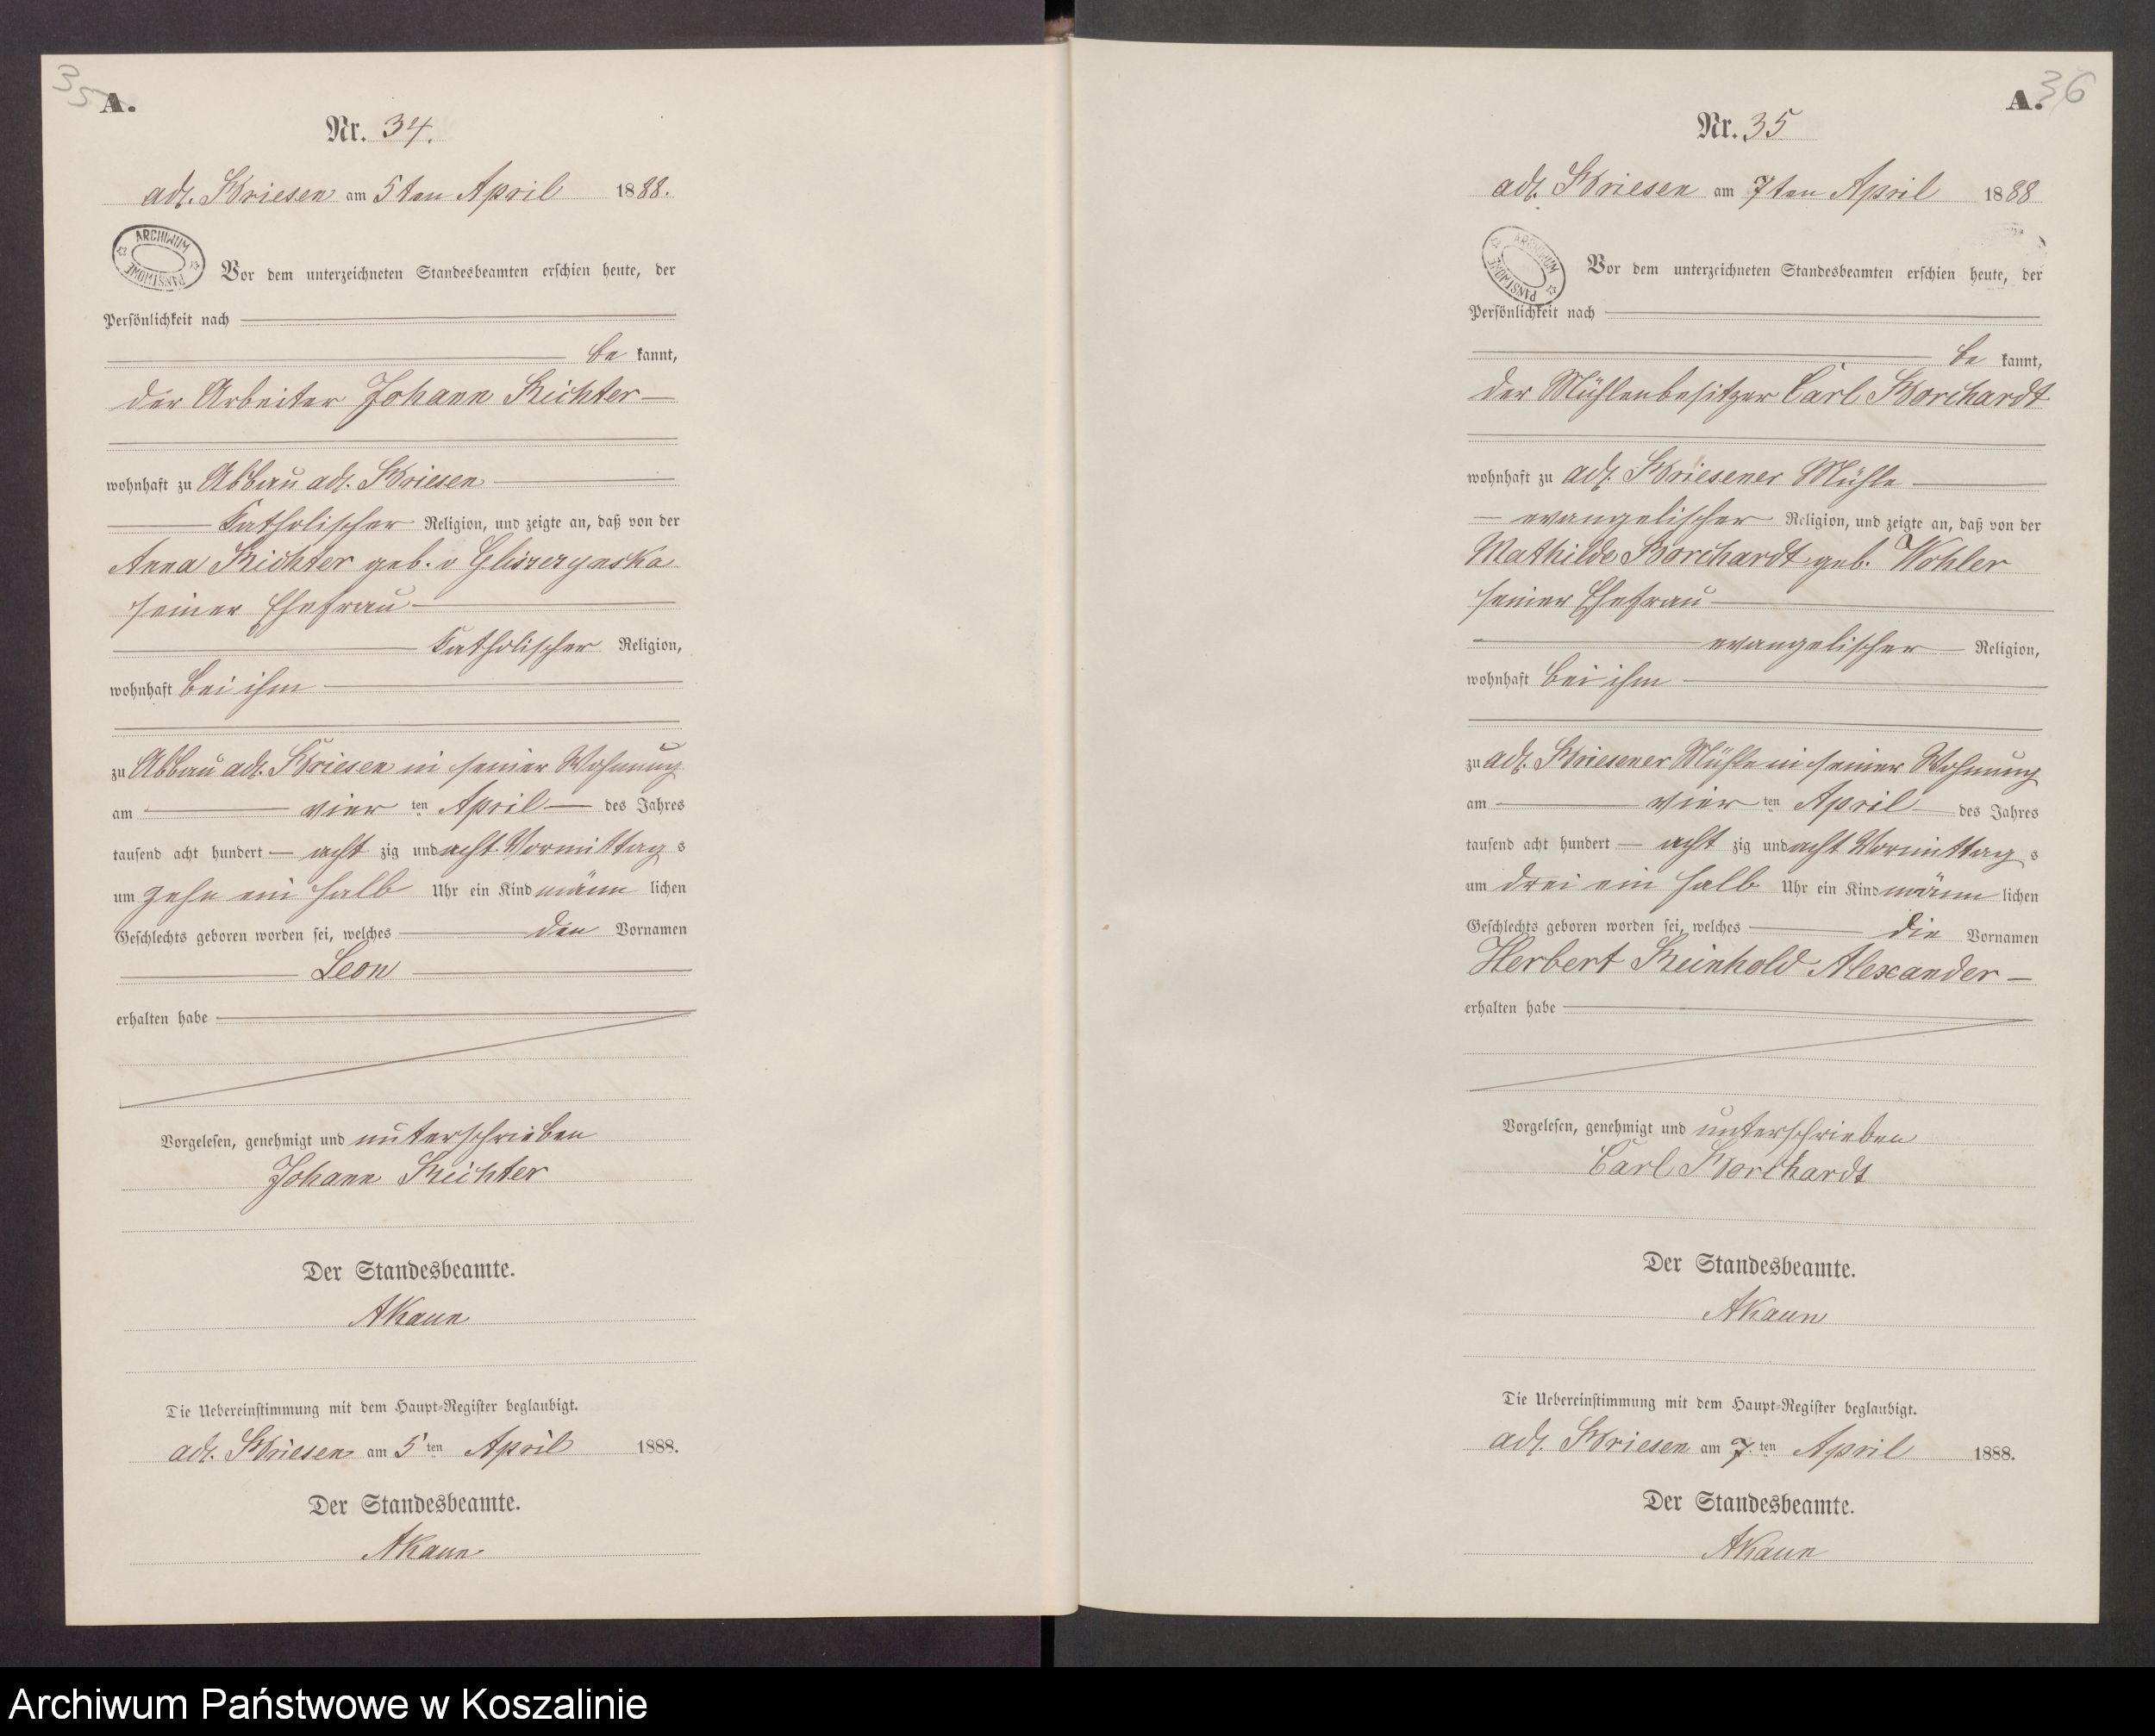 35
A.
Nr. 34.
adl. Briesen am 5ten April 1888.
ARCHIWUM PAŃSTWOWE
Vor dem unterzeichneten Standesbeamten erschien heute, der
Persönlichkeit nach
be kannt,
der Arbeiter Johann Richter
wohnhaft zu Abbau adl. Briesen
katholischer Religion, und zeigte an, daß von der
Anna Richter geb. v Gliszczynska
seiner Ehefrau
katholischer Religion,
wohnhaft bei ihm
zu Abbau adl. Briesen in seiner Wohnung
am vier ten April des Jahres
tausend acht hundert acht zig und acht Vormittag s
um zehn ein halb Uhr ein Kind männ lichen
Geschlechts geboren worden sei, welches den Vornamen
Leon
erhalten habe
Vorgelesen, genehmigt und unterschrieben
Johann Richter
Der Standesbeamte.
AKaun
Die Uebereinstimmung mit dem Haupt-Register beglaubigt.
adl. Briesen am 5 ten April 1888.
Der Standesbeamte.
AKaun
36
A.
Nr. 35
adl. Briesen am 7ten April 1888
ARCHIWUM PAŃSTWOWE
Vor dem unterzeichneten Standesbeamten erschien heute, der
Persönlichkeit nach
be kannt,
der Mühlenbesitzer Carl Borchardt
wohnhaft zu adl. Briesener Mühle
evangelischer Religion, und zeigte an, daß von der
Mathilde Borchardt geb. Wohler
seiner Ehefrau
evangelischer Religion,
wohnhaft bei ihm
zu adl. Briesener Mühle in seiner Wohnung
am vier ten April des Jahres
tausend acht hundert acht zig und acht Vormittag s
um drei ein halb Uhr ein Kind männ lichen
Geschlechts geboren worden sei, welches die Vornamen
Herbert Reinhold Alexander
erhalten habe
Vorgelesen, genehmigt und unterschrieben
Carl Borchardt
Der Standesbeamte.
AKaun
Die Uebereinstimmung mit dem Haupt-Register beglaubigt.
adl. Briesen am 7 ten April 1888.
Der Standesbeamte.
AKaun
Archiwum Państwowe w Koszalinie